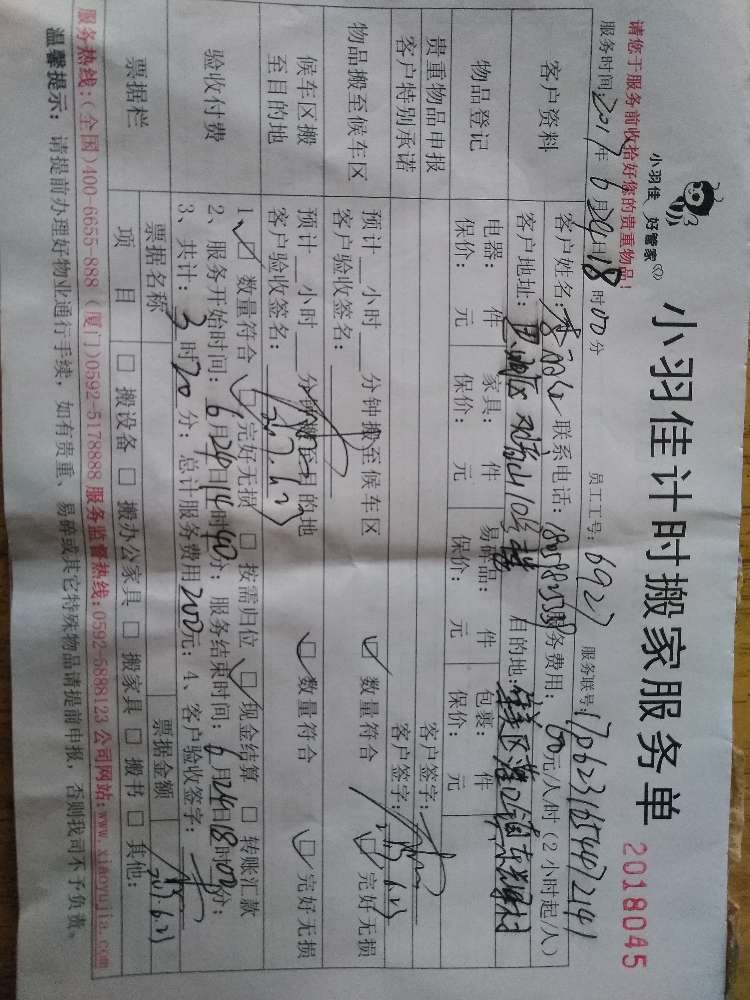 小羽佳 好管家
小羽佳计时搬家服务单
2018045
请您于服务前收拾好您的贵重物品!
服务时间:2017年6月24日18时00分 员工工号:6927 服务联号:
客户资料
客户姓名: 联系电话: 服务费用:60元/人/时(2小时起/人)
客户地址: 目的地:
物品登记
电器: 件 家具: 件 易碎品: 件 包裹: 件
保价: 元 保价: 元 保价: 元 保价: 元
贵重物品申报 客户签字:
客户特别承诺 客户签字:
物品搬至候车区
预计__小时__分钟搬至候车区 ☑数量符合 ☑完好无损
客户验收签名:
候车区搬至目的地
预计__小时__分钟搬至目的地 ☑数量符合 ☑完好无损
客户验收签名: 2017.6.23
验收付费
1、☑数量符合 ☑完好无损 □按需归位 ☑现金结算 □转账汇款
2、服务开始时间:6月24日14时40分;服务结束时间:6月24日18时00分;
3、共计:3时20分;总计服务费用200元;4、客户验收签字:
票据栏
票据名称 票据金额
项目 □搬设备 □搬办公家具 □搬家具 □搬书 □其他:
2017.6.23
服务热线:(全国)400-6655-888 (厦门)0592-5178888 服务监督热线:0592-5888123 公司网站:www.xiaoyujia.com
温馨提示: 请提前办理好物业通行手续,如有贵重、易碎或其它特殊物品请提前申报,否则我司不予负责。